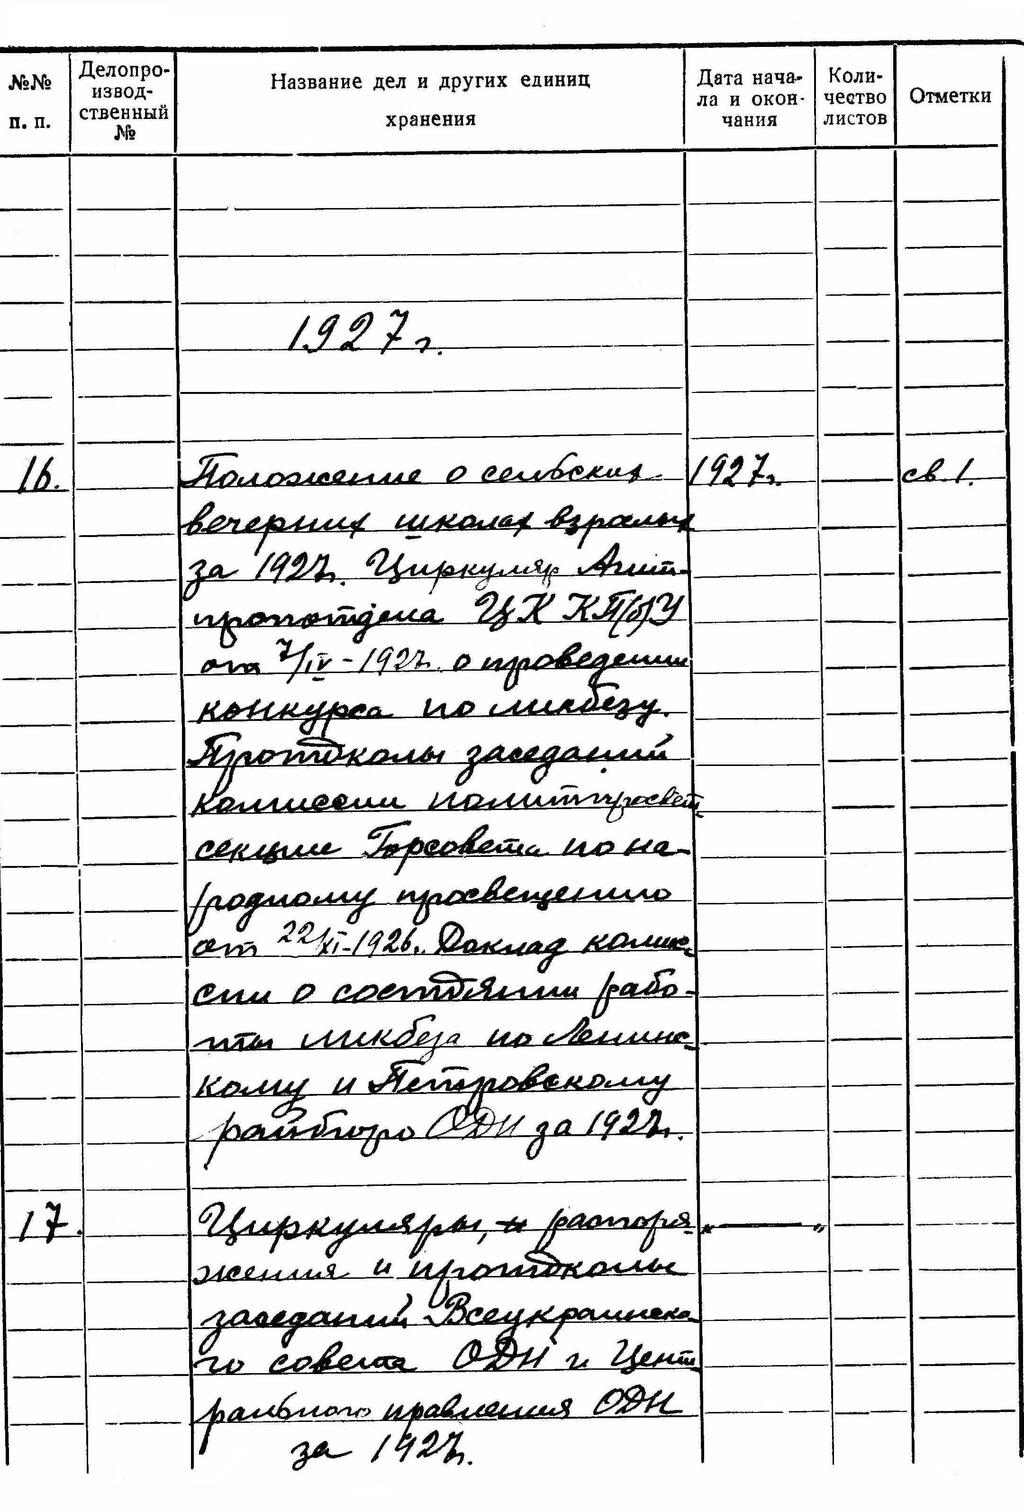 №№ п. п.
Делопро-
извод-
ственный
№
Название дел и других единиц
хранения
Дата нача-
ла и окон-
чания
Коли-
чество
листов
Отметки
1927 г.
16. Положение о сельских 1927г. св. 1.
вечерних школах взрослых
за 1927г. Циркуляр Агит-
пропотдела ЦК КП(б)У
от 7/IV-1927г. о проведении
конкурса по ликбезу.
Протоколы заседаний
комиссии политпросвет.
секции Горсовета по на-
родному просвещению
от 22/XI-1926г. Доклад комис-
сии о состоянии рабо-
ты ликбеза по Ленинс-
кому и Петровскому
райбюро ОДН за 1927г.
17. Циркуляры, распоря- „ — „
жения и протоколы
заседаний Всеукраинско-
го совета ОДН и Цент-
рального правления ОДН
за 1927г.